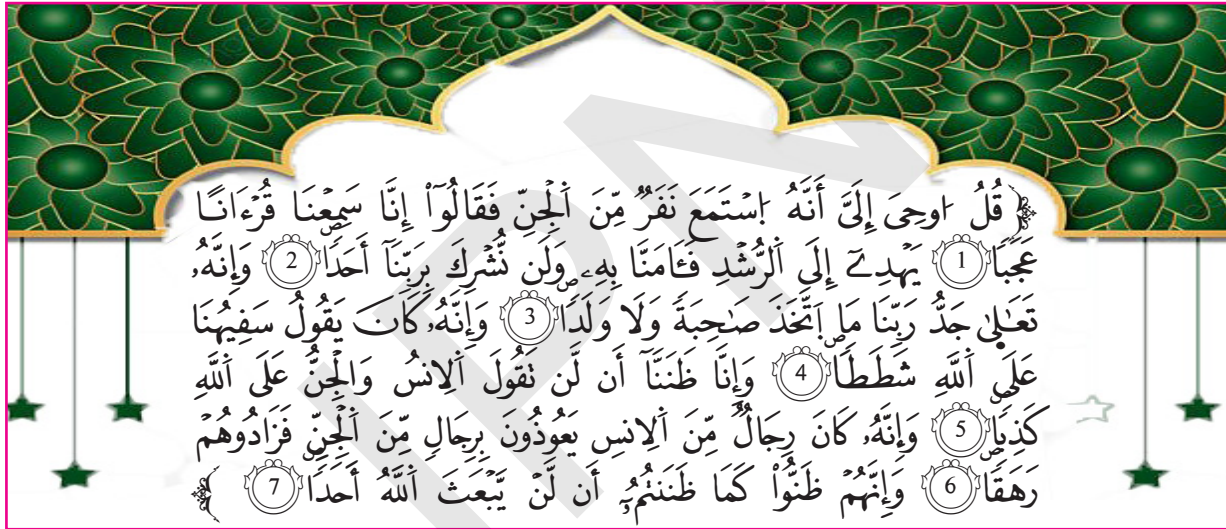 ﴿ قُلُ اوحِيَ إِلَيَّ أَنَّهُ اُ۪سْتَمَعَ نَفَرٌ مِّنَ اَ۬لْجِنِّ فَقَالُوٓاْ إِنَّا سَمِعْنَا قُرْءَاناً
عَجَباٗ 1 يَهْدِےٓ إِلَي اَ۬لرُّشْدِ فَـَٔامَنَّا بِهِۦ وَلَن نُّشْرِكَ بِرَبِّنَآ أَحَداٗ 2 وَإِنَّهُۥ
تَعَٰلۭيٰ جَدُّ رَبِّنَا مَا اَ۪تَّخَذَ صَٰحِبَةٗ وَلَا وَلَداٗ 3 وَإِنَّهُۥ كَانَ يَقُولُ سَفِيهُنَا
عَلَي اَ۬للَّهِ شَطَطاٗ 4 وَإِنَّا ظَنَنَّآ أَن لَّن تَقُولَ اَ۬لِانسُ وَالْجِنُّ عَلَي اَ۬للَّهِ
كَذِباٗ 5 وَإِنَّهُۥ كَانَ رِجَالٞ مِّنَ اَ۬لِانسِ يَعُوذُونَ بِرِجَالٖ مِّنَ اَ۬لْجِنِّ فَزَادُوهُمْ
رَهَقاٗ 6 وَإِنَّهُمْ ظَنُّواْ كَمَا ظَنَنتُمُۥٓ أَن لَّنْ يَّبْعَثَ اَ۬للَّهُ أَحَداٗ 7 ﴾
IPN